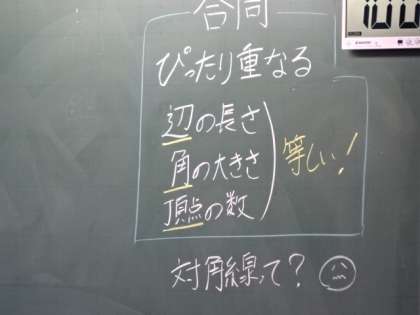 合同
ぴったり重なる
辺の長さ
角の大きさ
頂点の数
等しい!
対角線って?